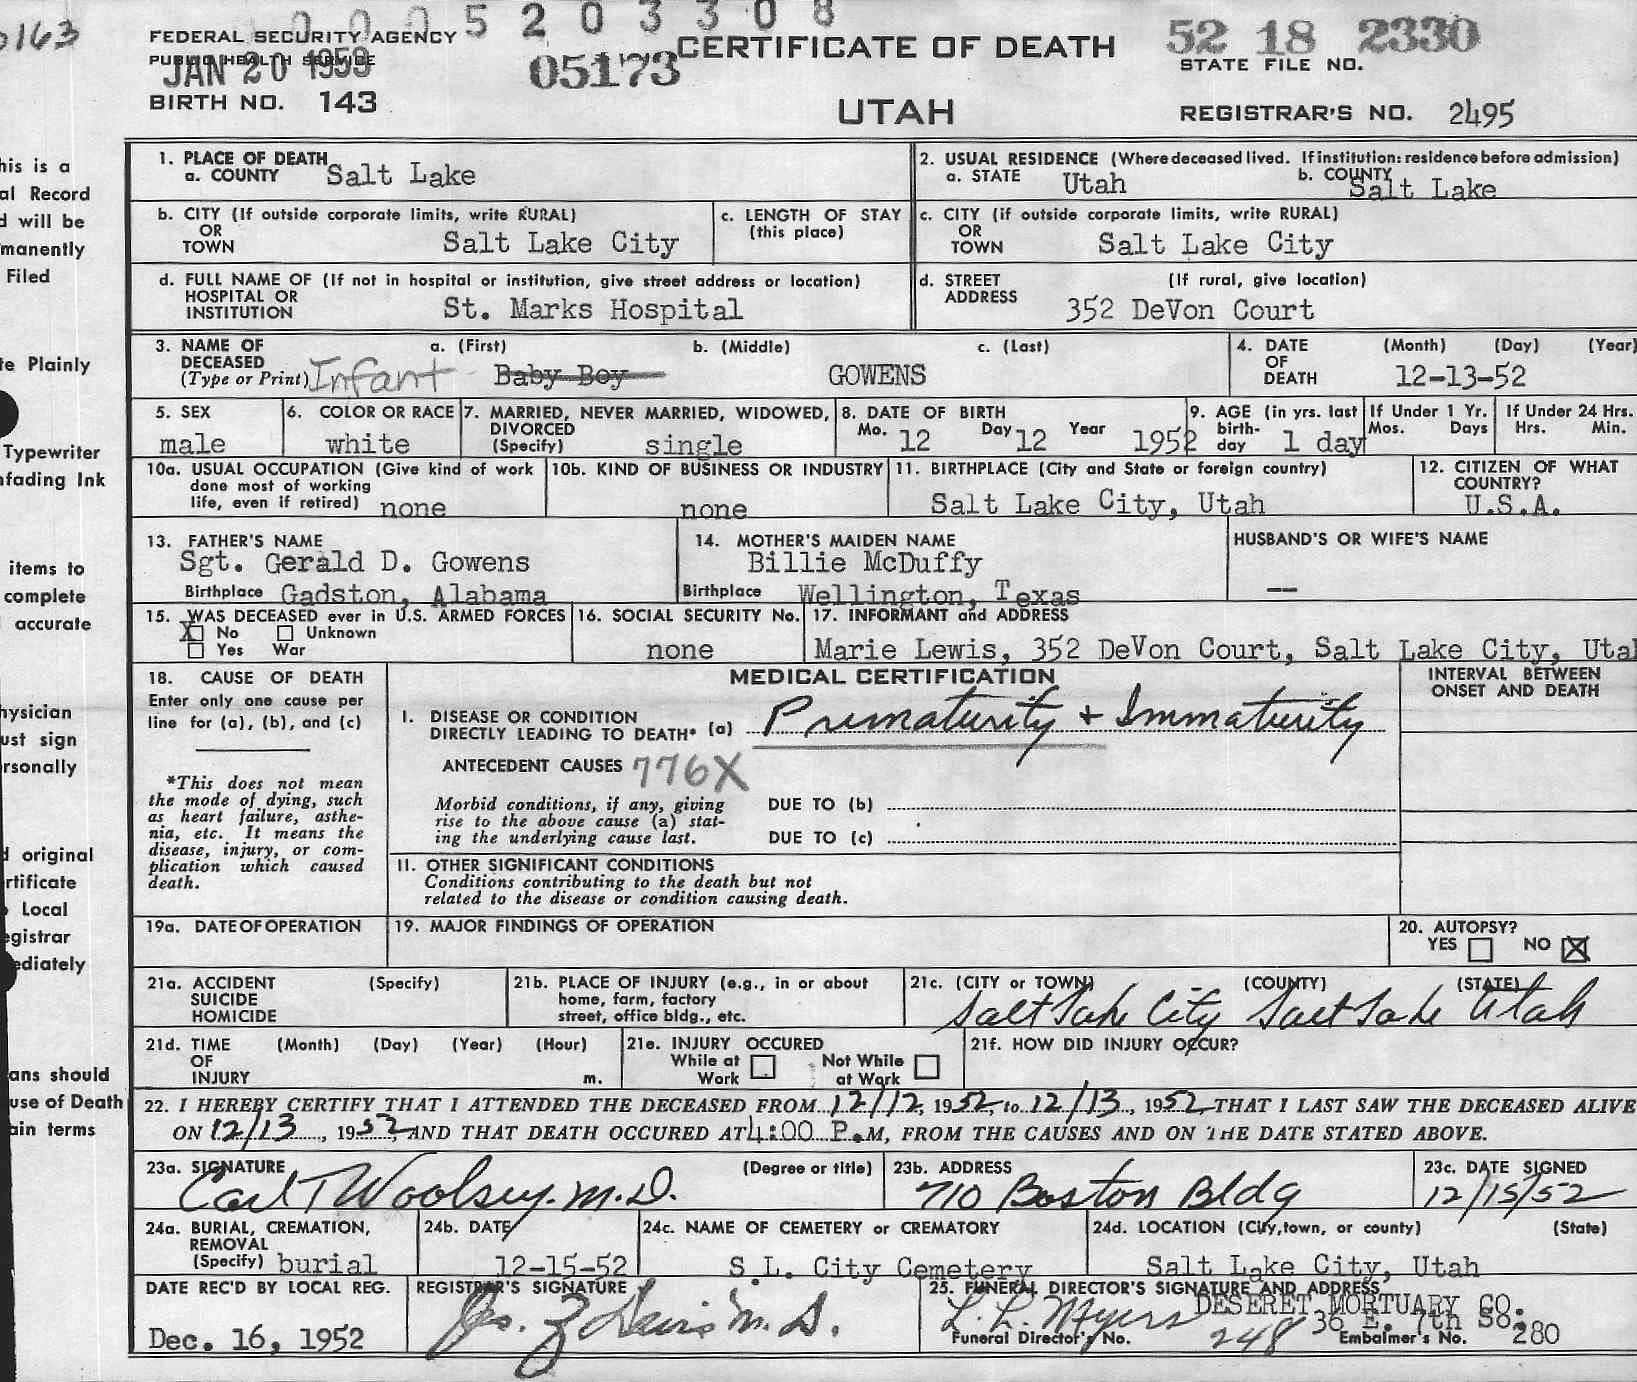 0005203308
163
FEDERAL SECURITY AGENCY
PUBLIC HEALTH SERVICE
JAN 20 1953
05173
CERTIFICATE OF DEATH
52 18 2330
STATE FILE NO.
BIRTH NO. 143
UTAH
REGISTRAR'S NO. 2495
his is a
al Record
d will be
manently
Filed
te Plainly
Typewriter
nfading Ink
items to
complete
accurate
hysician
ust sign
rsonally
d original
rtificate
Local
egistrar
ediately
ans should
use of Death
ain terms
1. PLACE OF DEATH
a. COUNTY Salt Lake
2. USUAL RESIDENCE (Where deceased lived. If institution: residence before admission)
a. STATE Utah b. COUNTY Salt Lake
b. CITY (If outside corporate limits, write RURAL)
OR
TOWN Salt Lake City
c. LENGTH OF STAY
(this place)
c. CITY (if outside corporate limits, write RURAL)
OR
TOWN Salt Lake City
d. FULL NAME OF (If not in hospital or institution, give street address or location)
HOSPITAL OR
INSTITUTION St. Marks Hospital
d. STREET (If rural, give location)
ADDRESS
352 DeVon Court
3. NAME OF a. (First) b. (Middle) c. (Last)
DECEASED
(Type or Print) Infant Baby Boy GOWENS
4. DATE (Month) (Day) (Year)
OF
DEATH 12-13-52
5. SEX
male
6. COLOR OR RACE
white
7. MARRIED, NEVER MARRIED, WIDOWED,
DIVORCED
(Specify) single
8. DATE OF BIRTH
Mo. 12 Day 12 Year 1952
9. AGE (in yrs. last
birth-
day 1 day
If Under 1 Yr.
Mos. Days
If Under 24 Hrs.
Hrs. Min.
10a. USUAL OCCUPATION (Give kind of work
done most of working
life, even if retired) none
10b. KIND OF BUSINESS OR INDUSTRY
none
11. BIRTHPLACE (City and State or foreign country)
Salt Lake City, Utah
12. CITIZEN OF WHAT
COUNTRY?
U.S.A.
13. FATHER'S NAME
Sgt. Gerald D. Gowens
Birthplace Gadston, Alabama
14. MOTHER'S MAIDEN NAME
Billie McDuffy
Birthplace Wellington, Texas
HUSBAND'S OR WIFE'S NAME
--
15. WAS DECEASED ever in U.S. ARMED FORCES
X No Unknown
Yes War
16. SOCIAL SECURITY No.
none
17. INFORMANT and ADDRESS
Marie Lewis, 352 DeVon Court, Salt Lake City, Uta
18. CAUSE OF DEATH
Enter only one cause per
line for (a), (b), and (c)
*This does not mean
the mode of dying, such
as heart failure, asthe-
nia, etc. It means the
disease, injury, or com-
plication which caused
death.
MEDICAL CERTIFICATION
INTERVAL BETWEEN
ONSET AND DEATH
I. DISEASE OR CONDITION
DIRECTLY LEADING TO DEATH* (a) Prematurity + Immaturity
ANTECEDENT CAUSES 776X
Morbid conditions, if any, giving
rise to the above cause (a) stat-
ing the underlying cause last.
DUE TO (b)
DUE TO (c)
II. OTHER SIGNIFICANT CONDITIONS
Conditions contributing to the death but not
related to the disease or condition causing death.
19a. DATE OF OPERATION
19. MAJOR FINDINGS OF OPERATION
20. AUTOPSY?
YES NO X
21a. ACCIDENT (Specify)
SUICIDE
HOMICIDE
21b. PLACE OF INJURY (e.g., in or about
home, farm, factory
street, office bldg., etc.
21c. (CITY or TOWN) (COUNTY) (STATE)
Salt Lake City Salt Lake Utah
21d. TIME (Month) (Day) (Year) (Hour)
OF
INJURY m.
21e. INJURY OCCURED
While at Work
Not While at Work
21f. HOW DID INJURY OCCUR?
22. I HEREBY CERTIFY THAT I ATTENDED THE DECEASED FROM 12/12, 1952, to 12/13, 1952 THAT I LAST SAW THE DECEASED ALIVE
ON 12/13, 1952, AND THAT DEATH OCCURED AT 4:00 P.M, FROM THE CAUSES AND ON THE DATE STATED ABOVE.
23a. SIGNATURE (Degree or title)
Carl T Woolsey. M.D.
23b. ADDRESS
710 Boston Bldg
23c. DATE SIGNED
12/15/52
24a. BURIAL, CREMATION,
REMOVAL
(Specify) burial
24b. DATE
12-15-52
24c. NAME OF CEMETERY or CREMATORY
S.L. City Cemetery
24d. LOCATION (City, town, or county) (State)
Salt Lake City, Utah
DATE REC'D BY LOCAL REG.
Dec. 16, 1952
REGISTRAR'S SIGNATURE
M.D.
25. FUNERAL DIRECTOR'S SIGNATURE AND ADDRESS
L. L. Myers DESERET MORTUARY CO.
36 E. 7th So.
Funeral Director's No. 248 Embalmer's No. 280